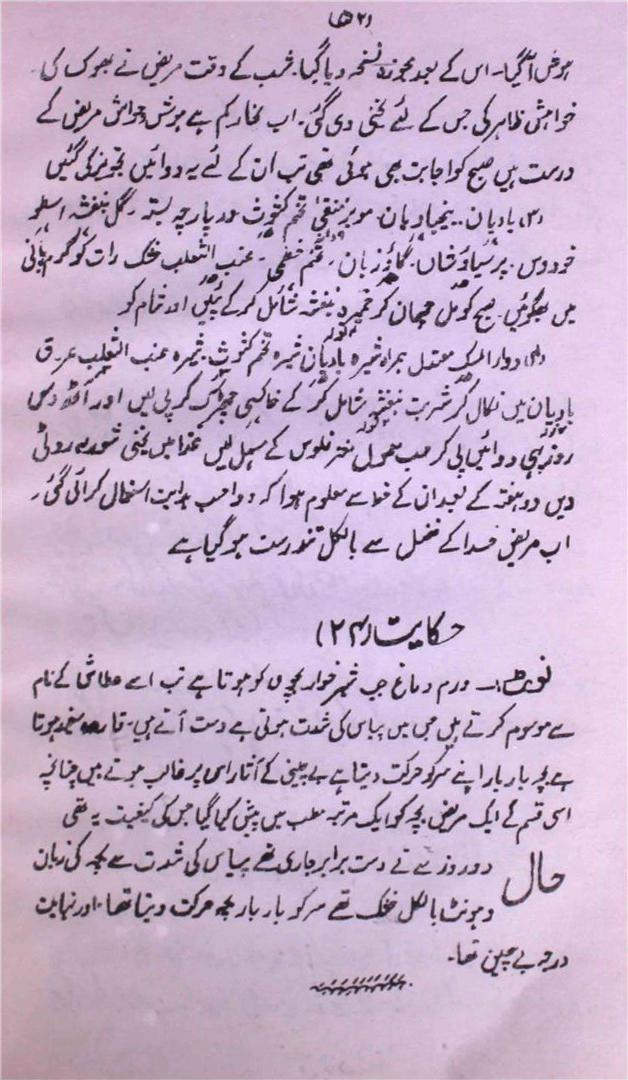 ہوش آگیا۔ اس کے بعد مجوزہ نسخہ دیا گیا۔ شب کے وقت مریض نے بھوک کی
خواہش ظاہر کی جس کے لئے یخنی دی گئی۔ اب بخار کم ہے ہوش و حواس مریض کے
درست ہیں صبح کو اجابت بھی ہوئی تھی تب ان کے لئے یہ دوائیں تجویز کی گئیں
بادیان۔ بیخ بادیان۔ مویز منقیٰ تخم کثوث در پارچہ بستہ۔ گل بنفشہ۔ اسطو
خودوس۔ پرسیاؤشاں۔ گاؤزبان۔ تخم خطمی۔ عنب الثعلب خشک رات کو گرم پانی
میں بھگوئیں۔ صبح کو مل چھان کر خمیرہ بنفشہ شامل کرکے پئیں اور شام کو
دواء المسک معتدل ہمراہ شیرہ بادیان شیرہ تخم کثوث۔ شیرہ عنب الثعلب عرق
بادیان میں نکال کر شربت بنفشہ شامل کر کے خاکسی چھڑک کر پی لیں اور آٹھ دس
روز یہی دوائیں پی کر حسب معمول مغز فلوس کے مسہل لیں غذا میں یخنی شوربہ روٹی
دیں دو ہفتہ کے بعد ان کے خط سے معلوم ہوا کہ دوا حسب ہدایت استعمال کرائی گئی۔
اب مریض خدا کے فضل سے بالکل تندرست ہو گیا ہے
حکایت (۲۴)
نوٹ:۔ ورم دماغ جب شیر خوار بچوں کو ہوتا ہے تب اسے عطاش کے نام
سے موسوم کرتے ہیں جس میں پیاس کی شدت ہوتی ہے دست آتے ہیں۔ قارورہ سفید ہوتا
ہے بچہ بار بار اپنے سر کو حرکت دیتا ہے بے چینی کے آثار اس پر غالب ہوتے ہیں چنانچہ
اسی قسم کے ایک مریض بچہ کو ایک مرتبہ مطب میں پیش کیا گیا جس کی کیفیت یہ تھی
حال دو روز سے قے دست برابر جاری تھے پیاس کی شدت سے بچہ کی زبان
و ہونٹ بالکل خشک تھے سر کو بار بار بچہ حرکت دیتا تھا۔ اور نہایت
درجہ بے چین تھا۔